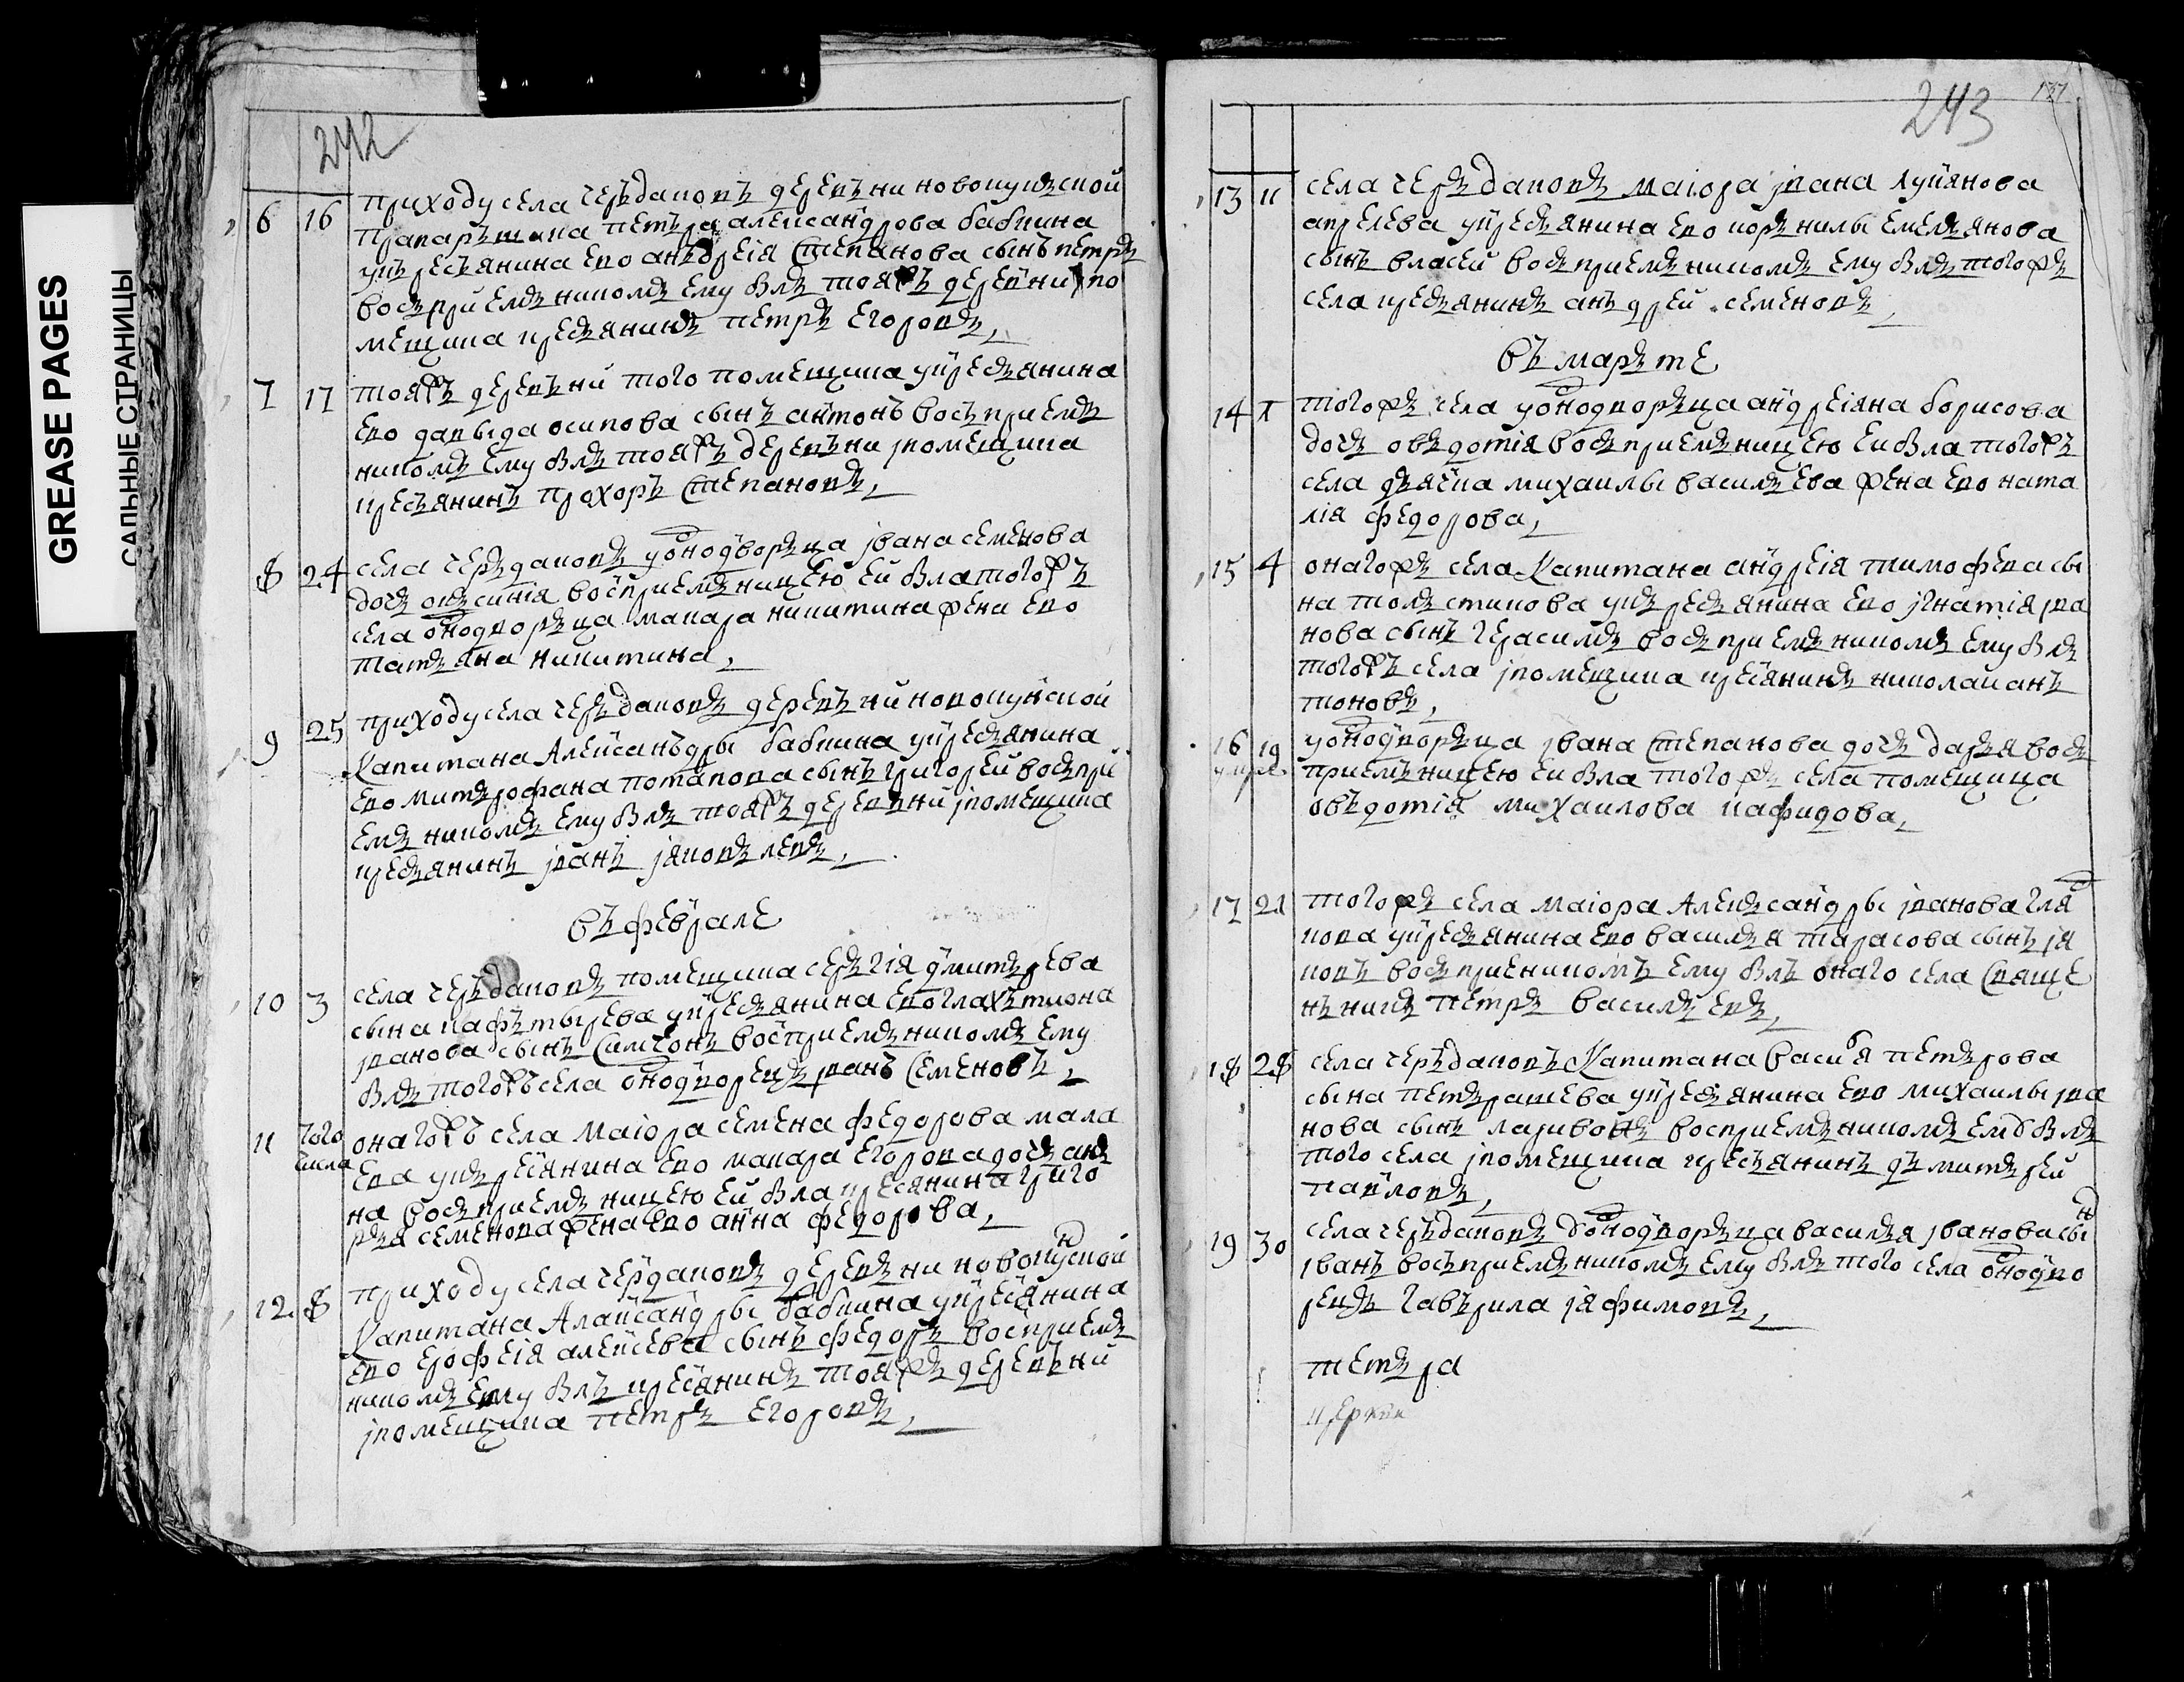 GREASE PAGES
САЛЬНЫЕ СТРАНИЦЫ
242
6 16 приходу села черъдаковъ деревъни новокускои
прапаръщика петъра александрова бабкина
укъресьянина ево анъдреія степанова сынъ петръ
восъприемъникомъ ему былъ тояжъ деревни по
мещика кресьянинъ петръ егоровъ,
7 17 тояжъ деревъни того помещика укресьянина
ево давыда осипова сынъ антонъ восъприемъ
никомъ ему былъ тояжъ деревъни іпомещика
кресьянинъ прохоръ степановъ,
8 24 села черъдаковъ уоноdворъца івана семенова
дочь оксинія восприемъницею еи была тогожъ
села оноdворъца макара никитина жена ево
татьяна никитина,
9 25 приходу села черъдаковъ деревъни новокускои
капитана Алексанъдры бабкина укресьянина
ево митърофана потапова сынъ григореи восъпри
емъникомъ ему былъ тояжъ деревъни іпомещика
кресьянинъ іванъ іяковълевъ,
въ феврале
10 3 села черъдаковъ помещика серъгія дмитърева
сына кафътырева укресьянина ево глахътиона
іванова сынъ симионъ восприемъникомъ ему
былъ тогожъ села оноdворецъ іванъ семеновъ,
11 того числа онагожъ села маіора семена федорова мала
ева укъресянина ево макара егорова дочь анъ
на восъприемъницею еи была кресянина григо
рья семенова жена ево анна федорова,
12 8 приходу села чердаковъ деревъни новокускои
капитана Алаксандры бабкина укресянина
ево ерофеія алексева сынъ федоръ восприемъ
никомъ ему былъ кресянинъ тояжъ деревъни
іпомещика петръ егоровъ,
243
13 11 села черъдаковъ маіора івана лукянова
апрелева укресьянина ево корънилы емельянова
сынъ власеи восъприемъникомъ ему былъ тогожъ
села кресьянинъ анъдреи семеновъ,
въ маръте
14 1 тогожъ села уоноdворъца андреіяна борисова
дочь овъдотія восъприемъницею еи была тогожъ
села дьячка михаилы васильева жена ево ната
лія федорова,
15 4 онагожъ села капитана андреія тимофева сы
на толъстикова укъресьянина ево ігнатія іва
нова сынъ герасимъ восъприемъникомъ ему былъ
тогожъ села іпомещика кресянинъ николаи анъ
тоновъ,
16 19 уоноdворъца івана степанова дочь дарья восъ
приемъницею еи была тогожъ села помещица
овъдотія михаилова кафидова,
17 21 тогожъ села маіора Алекъсандры іванова гля
кова укресьянина ево василья тарасова сынъ ія
ковъ восъприеникомъ ему былъ онаго села свяще
нъникъ петръ васильевъ,
18 28 села черъдаковъ капитана васия петърова
сына петърашева укресьянина ево михаилы іва
нова сынъ ларивонъ восприемъникомъ ему былъ
того села іпомещика кресьянинъ дъмитъреи
павловъ,
19 30 села черъдаковъ уоноdворъца василья іванова сынъ
іванъ восъприемъникомъ ему былъ того села оноdво
рецъ гавърила іяфимовъ,
петъра